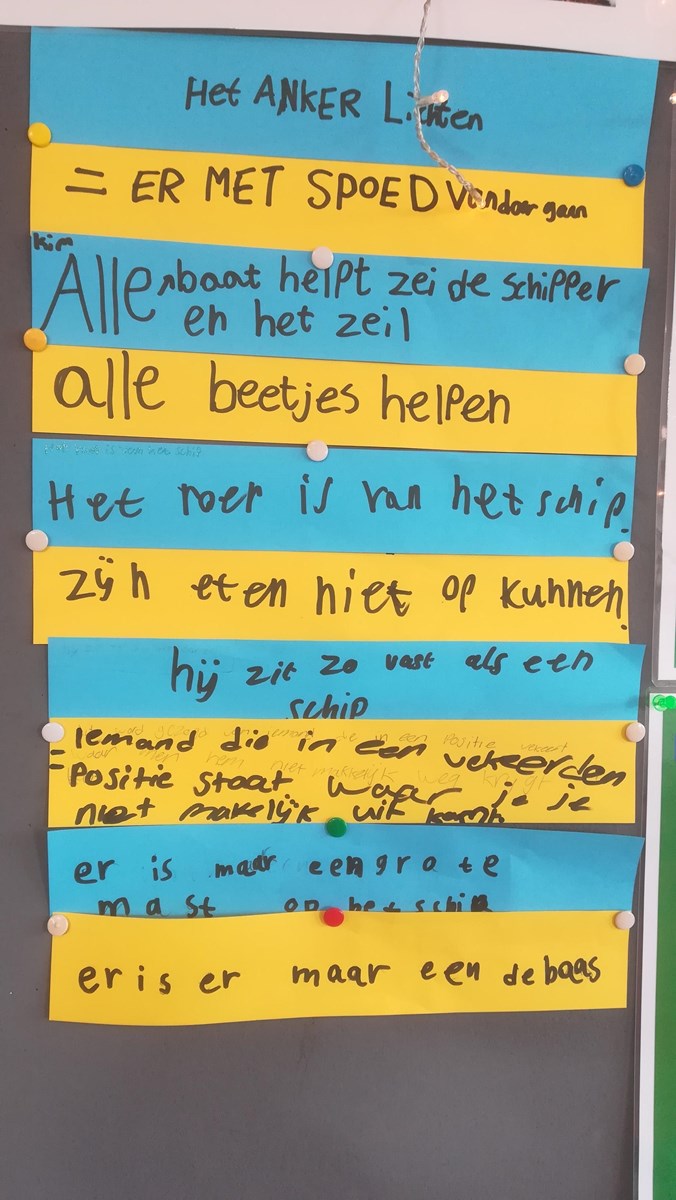 Het ANKER Lichten
= ER MET SPOED vandoor gaan
kim
Alle baat helpt zei de schipper
en het zeil
alle beetjes helpen
Het roer is van het schip.
zijn eten niet op kunnen.
hij zit zo vast als een
schip
= Iemand die in een vekeerden
Positie staat waar je je
niet makelijk uit komt
er is maar een grote
mast op het schip
er is er maar een de baas